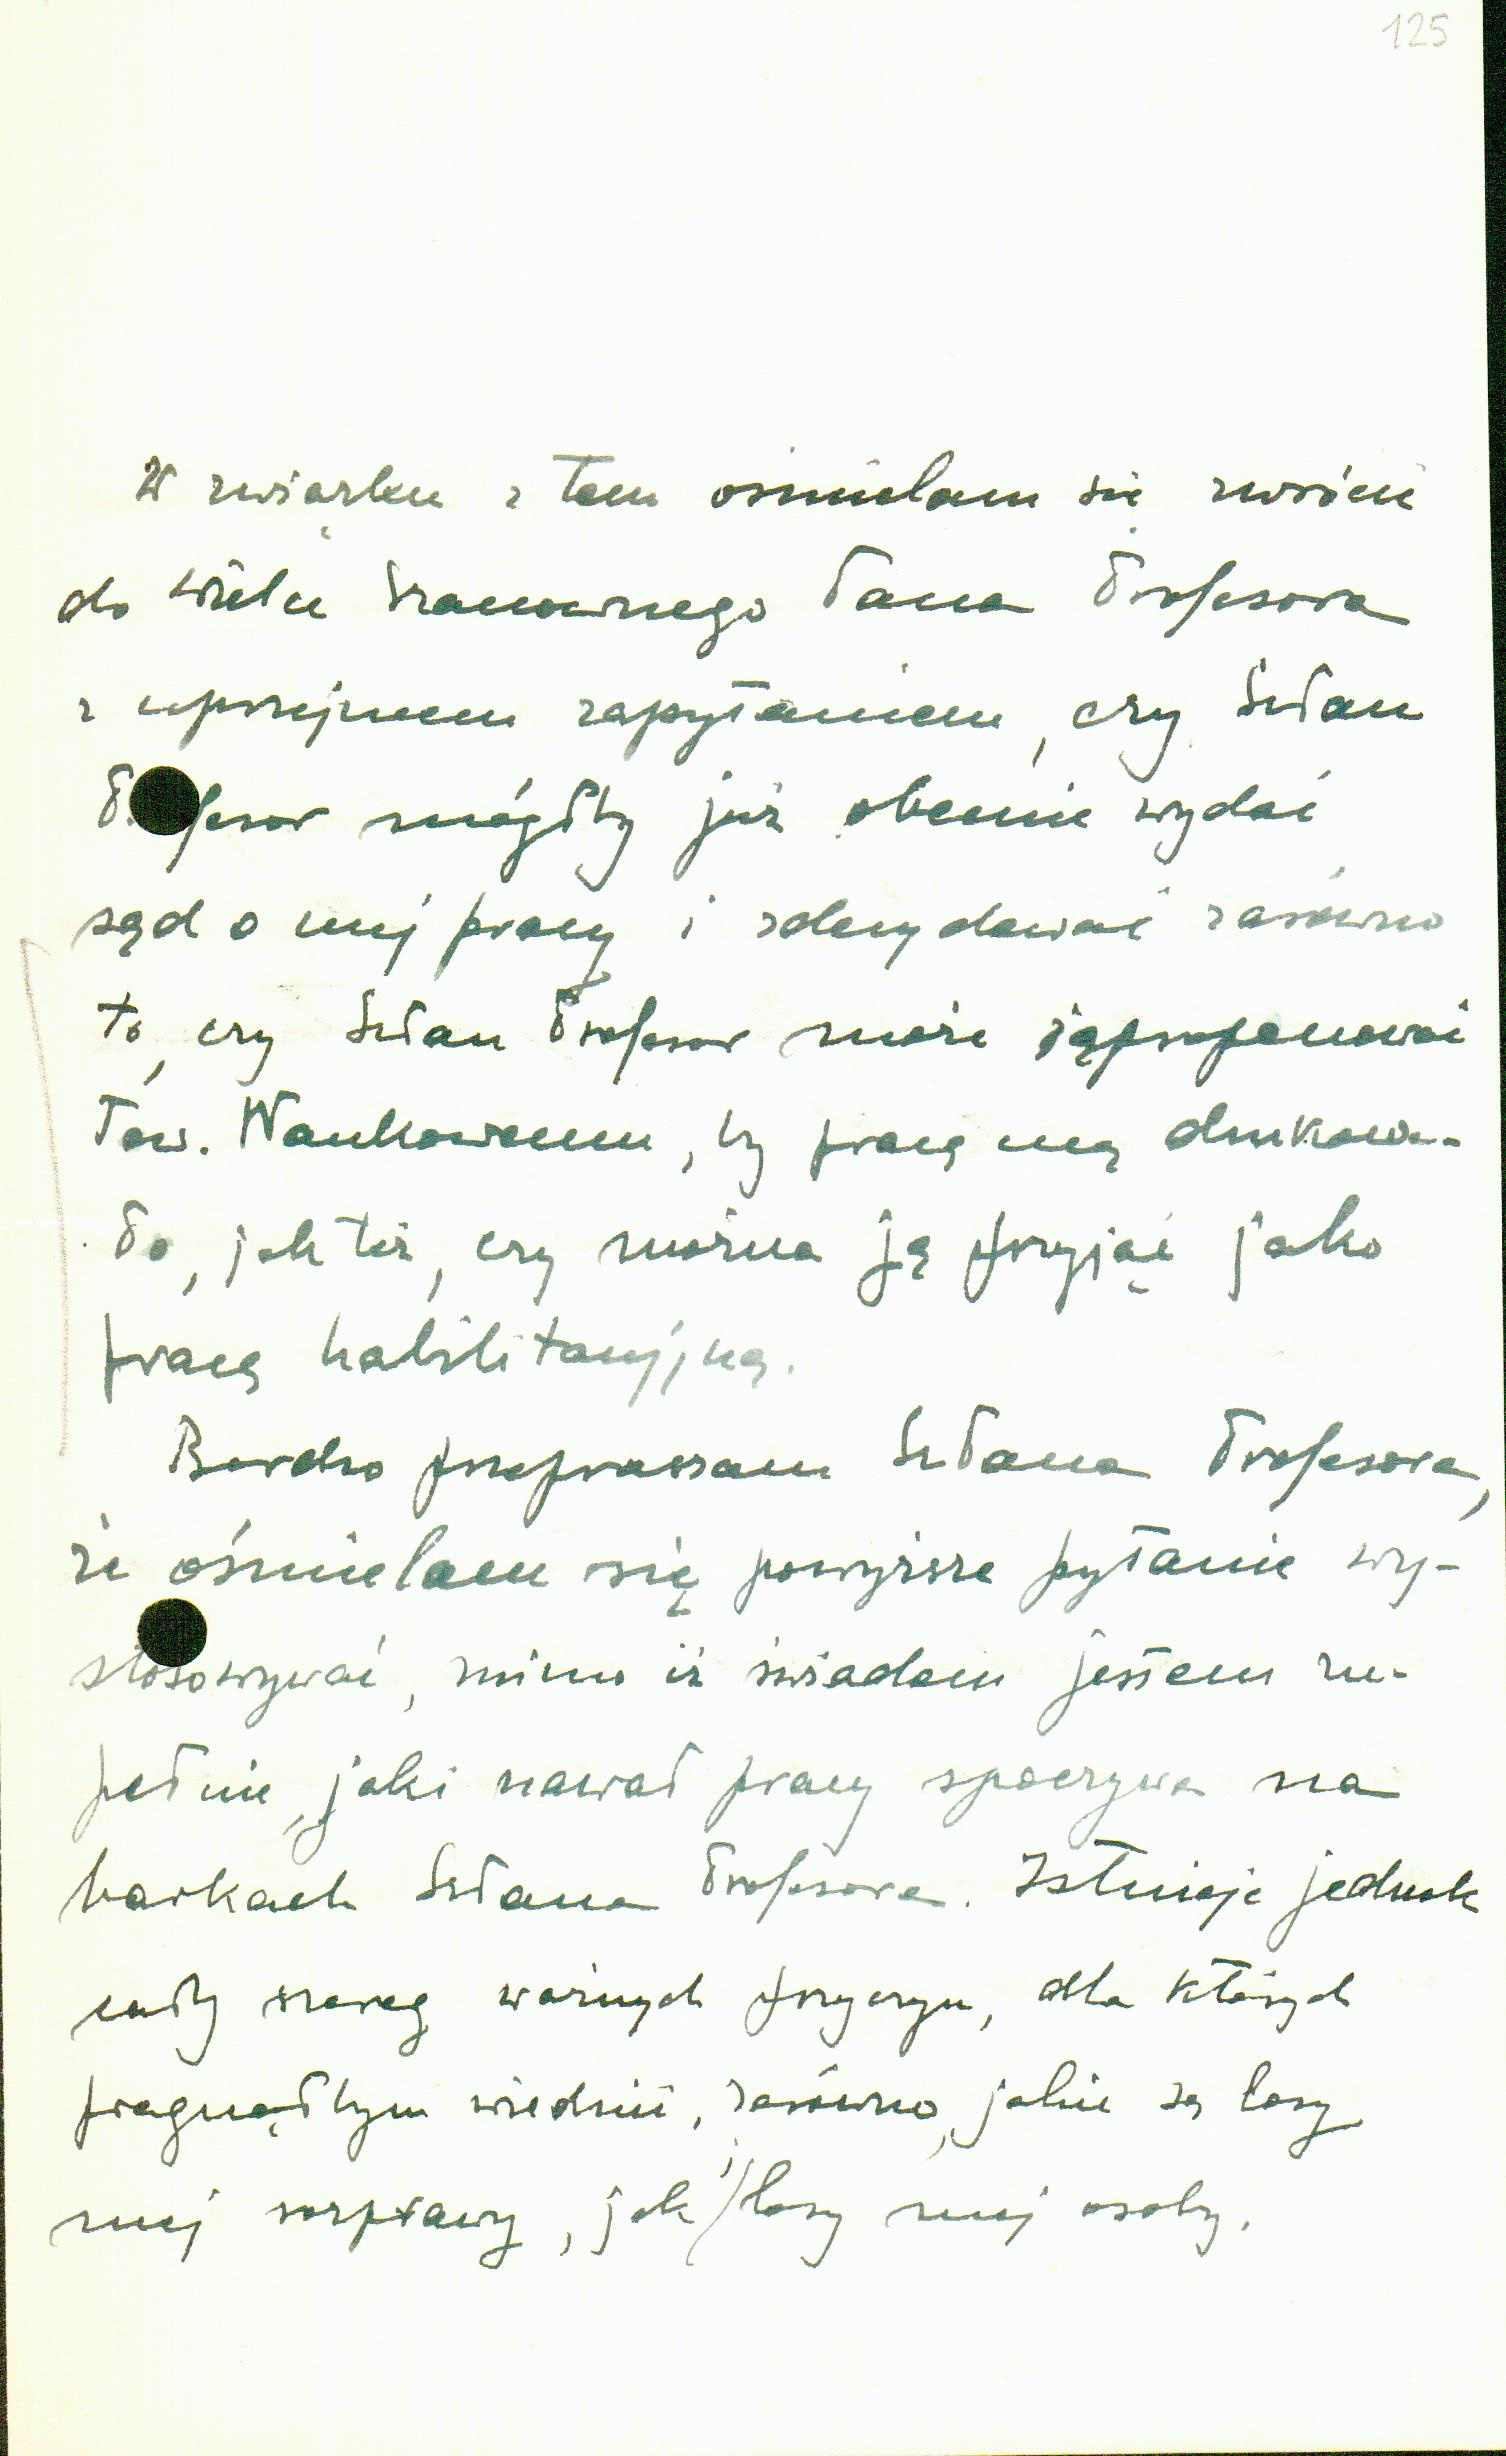 125
W związku z tem ośmielam się zwrócić
do Wielce Szanownego Pana Profesora
z uprzejmem zapytaniem, czy SzPan
Profesor mógłby już obecnie wydać
sąd o mej pracy i zdecydować zarówno
to, czy SzPan Profesor może ją proponować
Tow. Naukowemu, by pracę mą drukowa-
ło, jak też, czy można ją przyjąć jako
pracę habilitacyjną.
Bardzo przepraszam SzPana Profesora,
że ośmielam się powyższe pytanie wy-
stosowywać, mimo iż świadom jestem zu-
pełnie, jaki nawał pracy spoczywa na
barkach SzPana Profesora. Istnieje jednak
cały szereg ważnych przyczyn, dla których
pragnąłbym wiedzieć, zarówno, jakie są losy
mej rozprawy, jak i losy mej osoby.